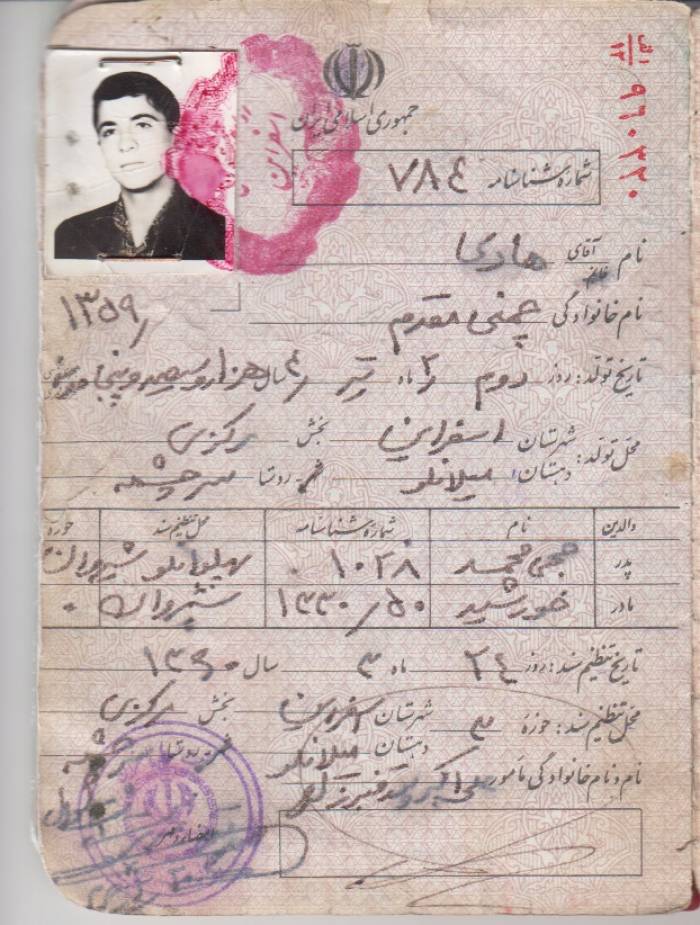 ۱ الف
۱۳
۹۶۰۲۲۰
جمهوری اسلامی ایران
اسفراین
شماره شناسنامه ۷۸۴
نام آقای خانم هادی
نام خانوادگی چمنی مقدم
۱۳۵۹
تاریخ تولد: روز دوم ۲ ماه تیر ۴ سال هزار و سیصد و پنجاه و
محل تولد: شهرستان اسفراین بخش مرکزی
دهستان میلانلو شهر - روستا سرچشمه
والدین نام شماره شناسنامه محل تنظیم سند حوزه
پدر حجی محمد ۱۰۲۸ پهلوانلو شیروان
مادر خورشید ۱۳۳۰/۵۰ شیروان
تاریخ تنظیم سند: روز ۲۴ ماه ۳ سال ۱۳۶۰
محل تنظیم سند: حوزه ۳ شهرستان اسفراین بخش مرکزی
دهستان میلانلو شهر - روستا سرچشمه
نام و نام خانوادگی مأمور علی اکبر
امضاء و مهر